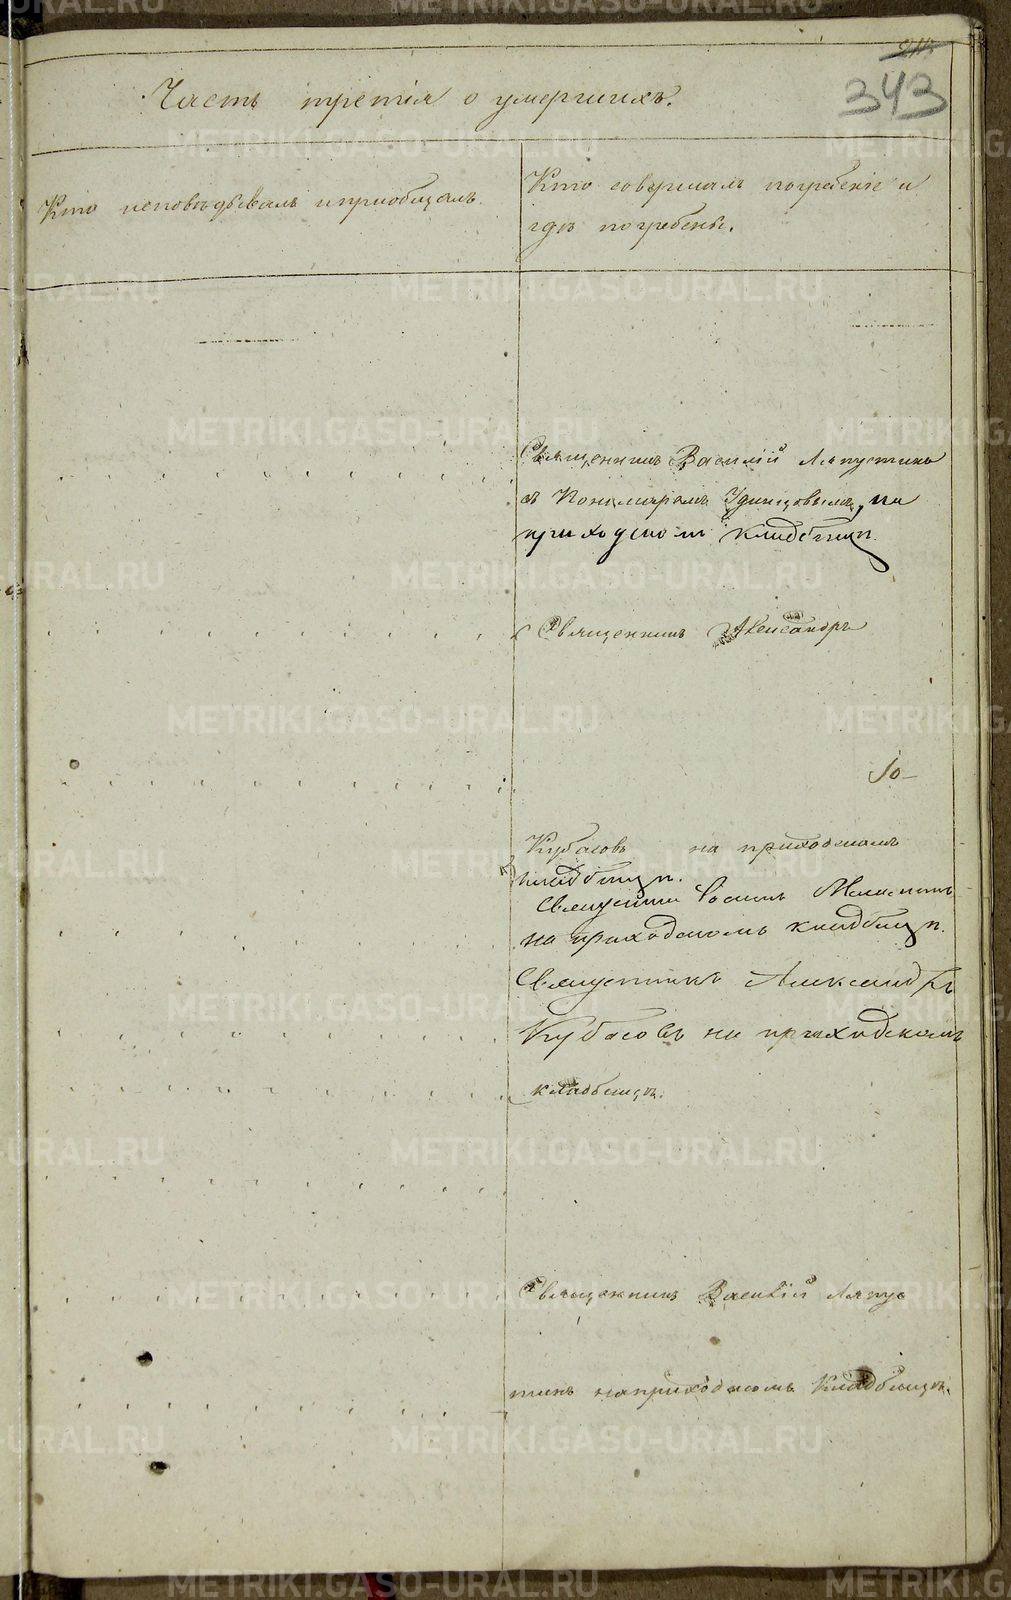 343
Часть третія о умершихъ.
Кто исповѣдывалъ и приобщалъ.
Кто совершалъ погребеніе и
гдѣ погребены.
Священникъ Василій Ляпустинъ
съ Пономаремъ Удинцовымъ, на
приходскомъ кладбищѣ.
Священникъ Александръ
Кубасовъ на приходскомъ
кладбищѣ.
Священникъ
на приходскомъ кладбищѣ.
Священникъ Александръ
Кубасовъ на приходскомъ
кладбищѣ.
Священникъ Василій Ляпус
тинъ на приходскомъ Кладбищѣ.
METRIKI.GASO-URAL.RU